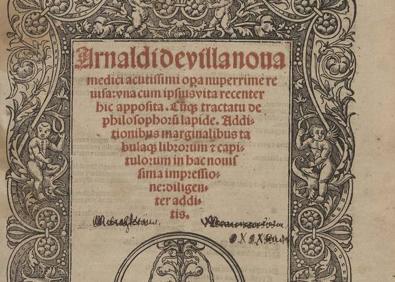 Arnaldi de villa noua
medici acutissimi oꝑa nuperrime re
uisa: vna cum ipsius vita recenter
hic apposita. Cūqꝫ tractatu de
philosophorū lapide. Addi-
tionibus marginalibus ta
bulaqꝫ librorum ⁊ capi-
tulorum in hac nouis
sima impressio
ne: diligen-
ter addi
tis.